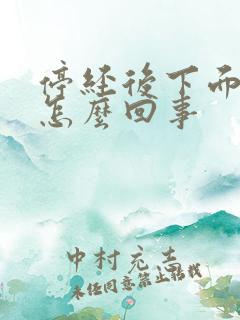 停經後下面
怎麼回事
中村克圭
未经同意禁止搭我